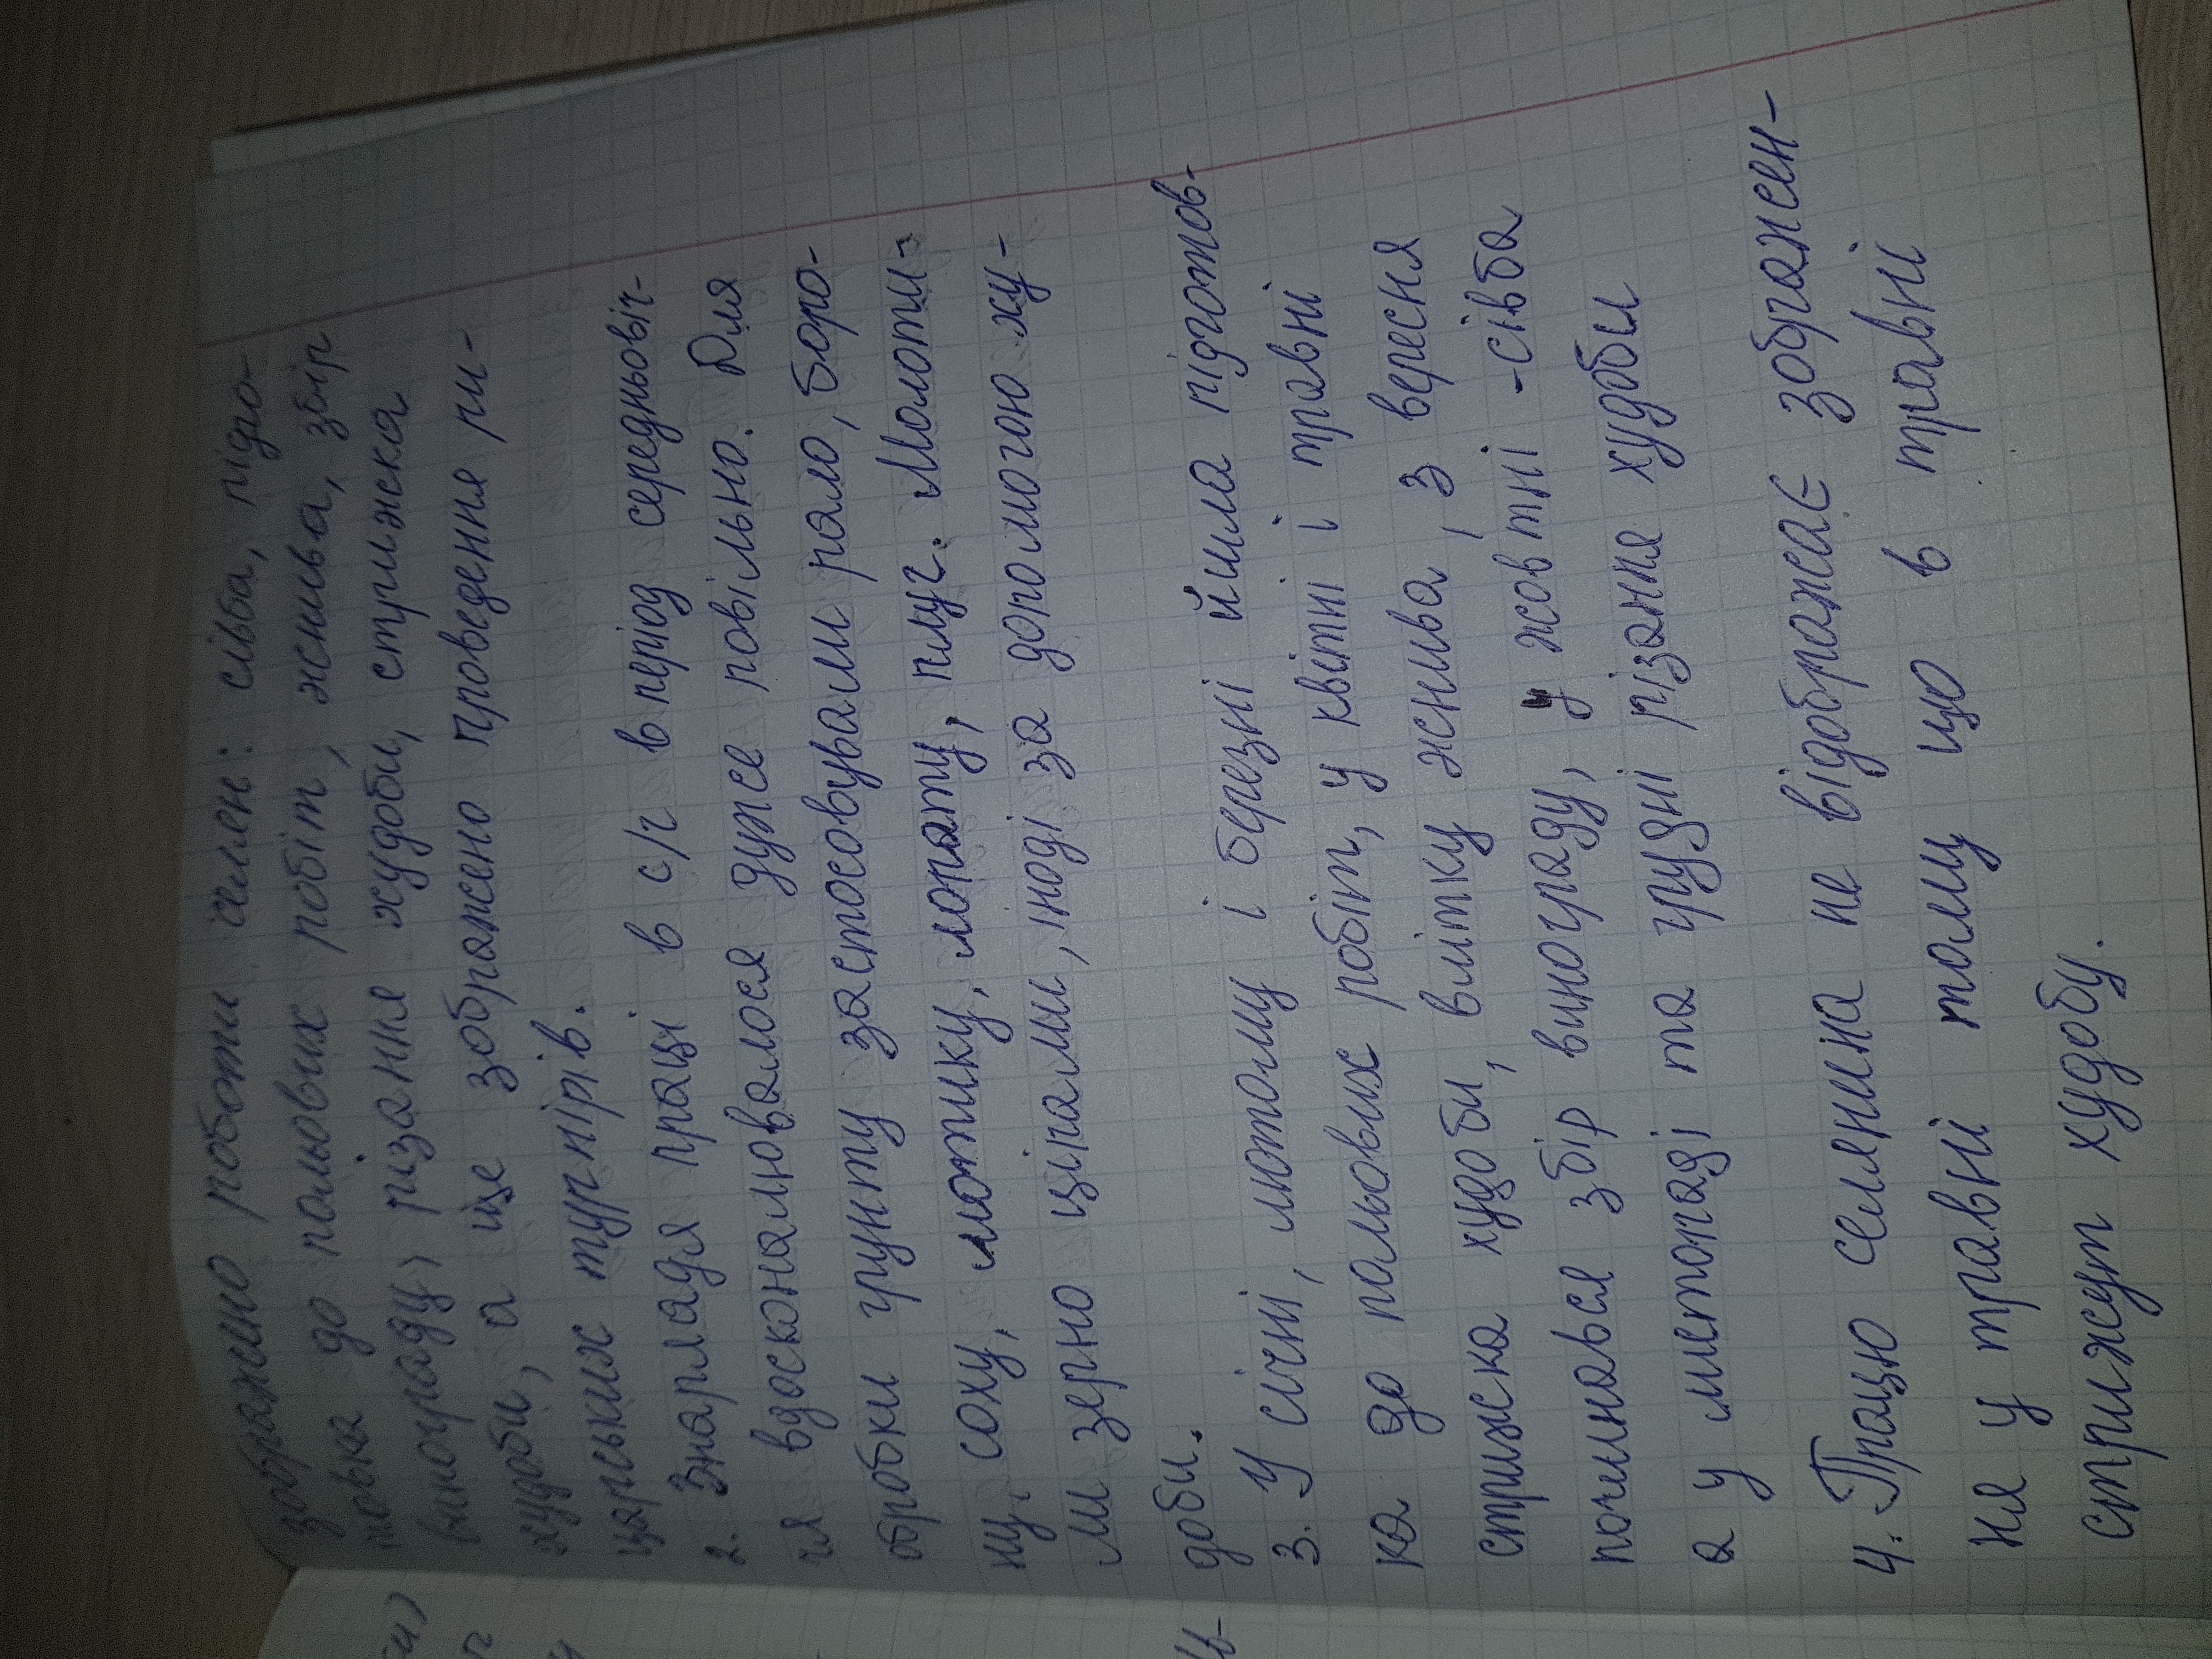 зображено роботи селян: сівба, підго-
товка до польових робіт, жнива, збір
винограду, різання худоби, стрижка
худоби, а ще зображено проведення ри-
царських турнірів.
2. Знаряддя праці в с/г в період середньовіч-
чя вдосконалювалося дуже повільно. Для
обробки грунту застосовували рало, боро-
ну, соху, мотику, лопату, плуг. Молоти-
ли зерно ціпами, іноді за допомогою ху-
доби.
3. У січні, лютому і березні йшла підготов-
ка до польових робіт, у квітні і травні
стрижка худоби, влітку жнива, з вересня
починався збір винограду, у жовтні - сівба
а у листопаді та грудні різання худоби
4. Працю селянина не відображає зображен-
ня у травні тому що в травні
стрижут худобу.